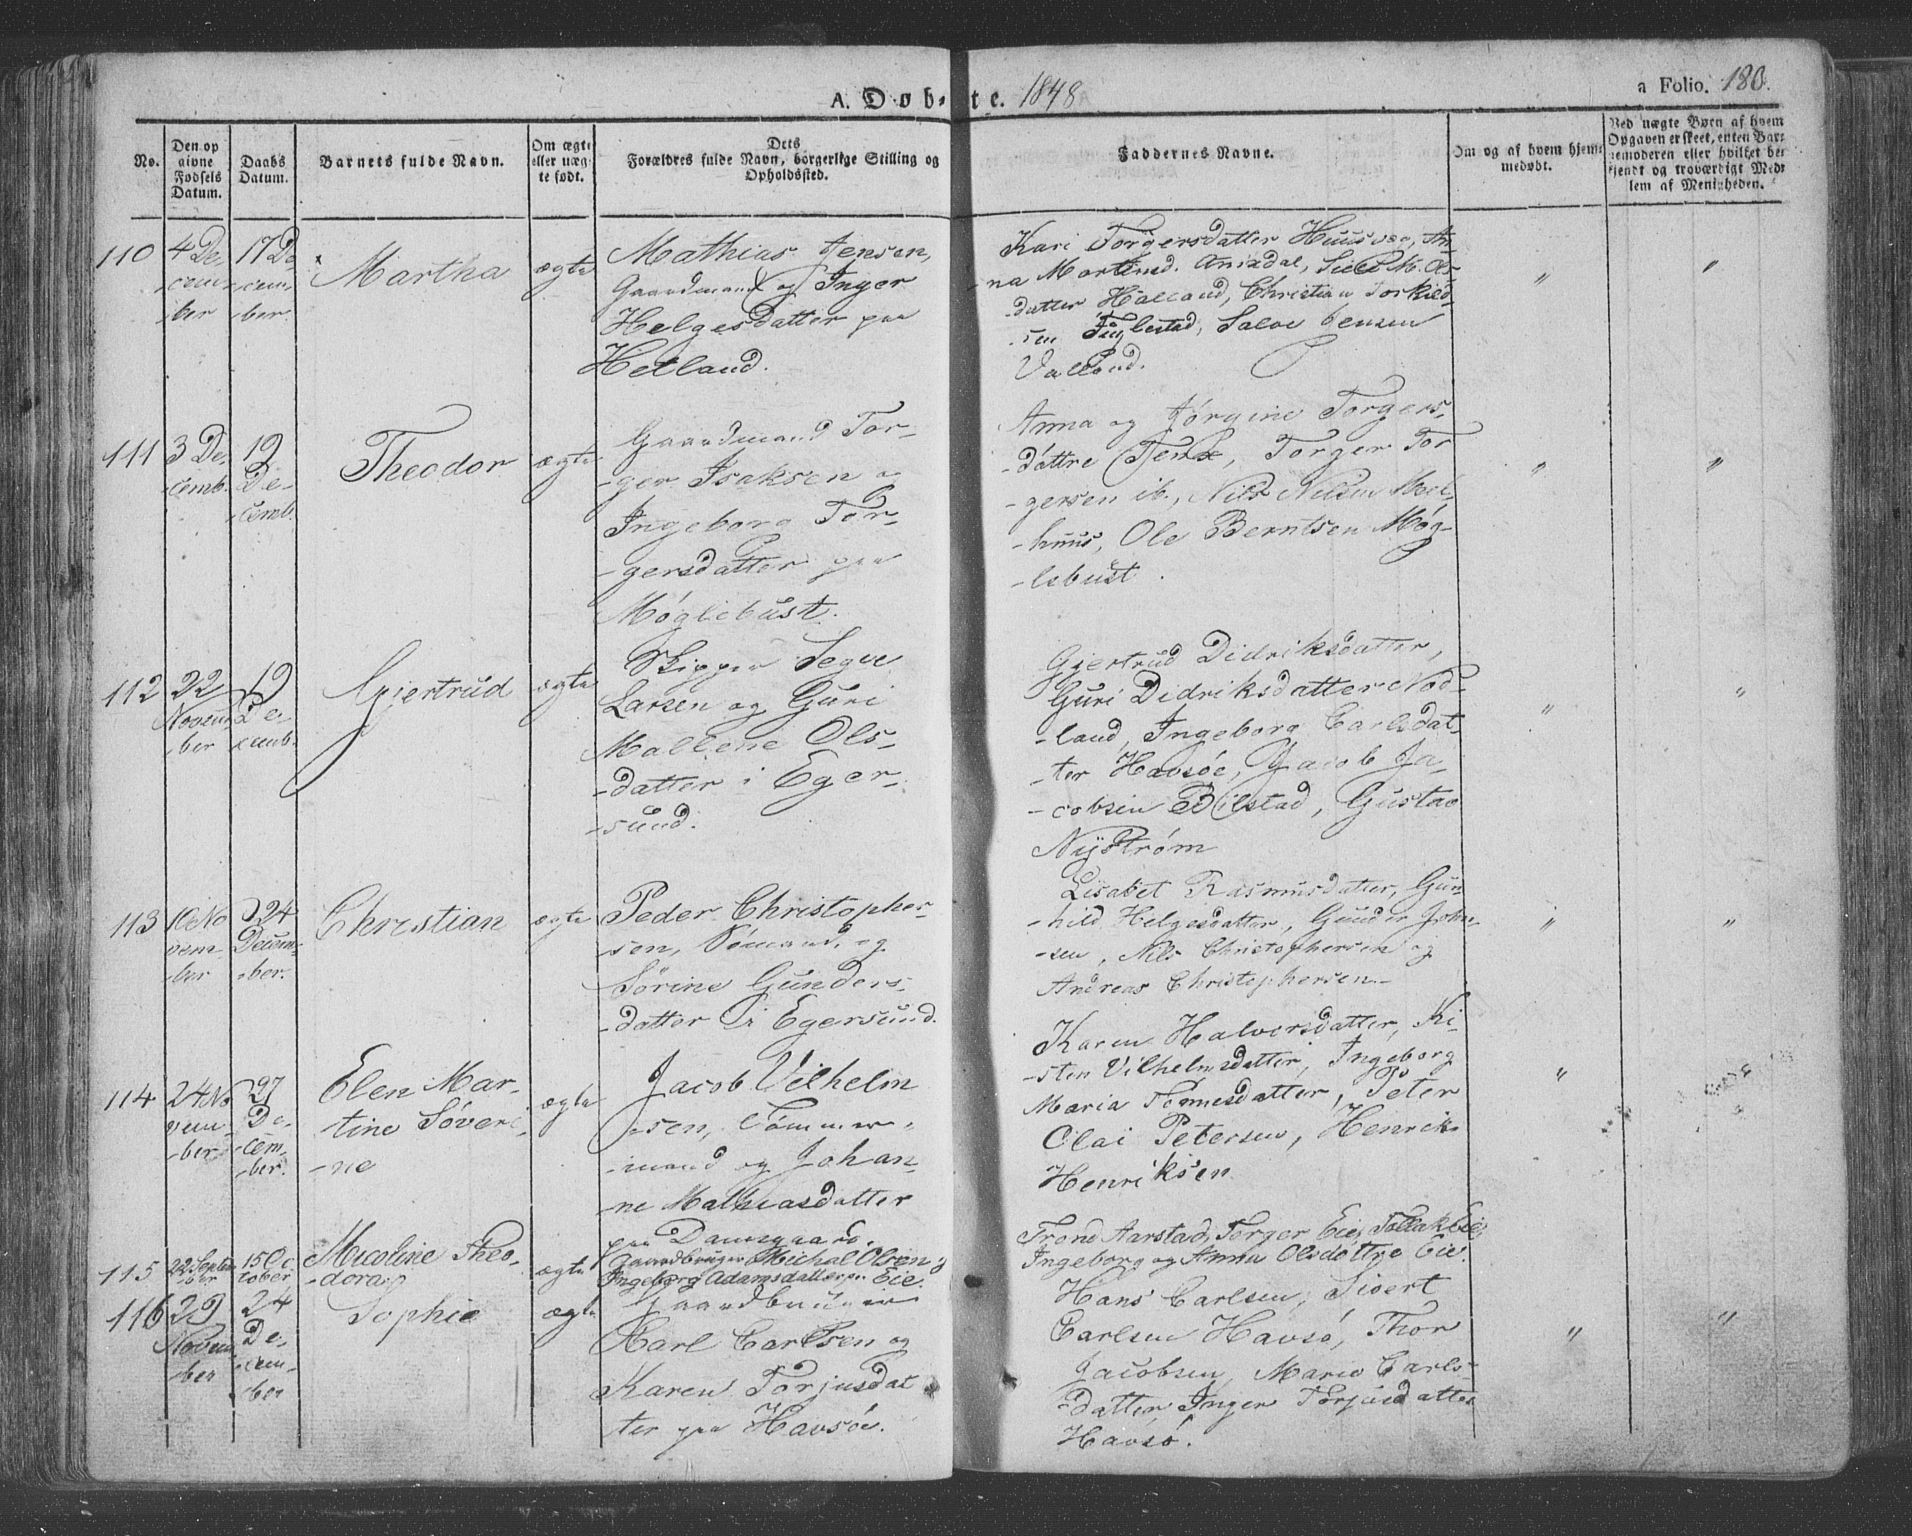 A. Døbte. 1848
a Folio. 180.
No.
Den op
givne
Fødsels
Datum.
Daabs
Datum.
Barnets fulde Navn.
Om ægte
eller uæg-
te født.
Dets
Forældres fulde Navn, borgerlige Stilling og
Opholdssted.
Faddernes Navne.
Om og af hvem hjem-
medøbt.
Ved uægte Børn af hvem
Opgaven er skeet, enten Bar-
nemoderen eller hvilket be-
kjendt og troværdigt Med-
lem af Menigheden.
110
4 De-
-cem-
-ber
17 De
-cem-
-ber.
Martha
ægte
Mathias Jensen,
Gaardmand og Inger
Helgesdatter paa
Hetland.
Kari Torgersdatter Huus An-
-na Martinsd. Siel M. Ols-
-datter Halland, Christian Torkild-
-sen Salve Jensen
Valland.
"
"
111
3 De-
-cemb.
19
De-
-cemb.
Theodor
ægte
Gaardmand Tor-
-ger Isaksen og
Ingeborg Tor-
-gersdatter paa
Møglebust.
Anna og Jørgine Torgers-
-døttre Torger Tor
-gersen ib., Nils Nilsen
-huus, Ole Berntsen Møg-
-lebust.
"
"
112
22
Novem-
-ber
19
De-
-cemb.
Gjertrud
ægte
Skipper
Larsen og Guri
Mallene Ols-
-datter i Eger-
-sund.
Gjertrud Didriksdatter,
Guri Didriksdatter Nod-
-land, Ingeborg Carlsdat-
-ter Havsøe, Jacob Ja-
-cobsen Bilstad, Gustav
Nyström
"
"
113
10 No
-vem-
-ber
24
Decem-
-ber.
Christian
ægte
Peder Christopher-
-sen, Sømand, og
Sørine Gunders-
-datter i Egersund.
Lisabet Rasmusdatter, Gun-
-hild Helgesdatter, Gunder John-
-sen, Nils Christophersen og
Andreas Christophersen.
"
"
114
24 No
-vem-
-ber
27
De-
-cem-
-ber.
Elen Mar-
tine Søveri-
-ne
ægte
Jacob Vilhelm
-sen, Tømmer-
-mand og Johan-
ne Mathiasdatter
paa Damsgaard.
Karen Halvorsdatter, Ki-
-sten Vilhelmsdatter, Ingeborg
Maria Tønnesdatter, Peter
Olai Petersen, Henrik
Henriksen
"
115
22 Septem
-ber
15 Oc
tober
Nicoline Theo-
-dora
ægte
Gaardbruger Michal Olsen og
Ingeborg Adamsdatter paa Eie.
Trond Aarstad, Torger Eie, Tollak Eie,
Ingeborg og Anna Olsdøttre Eie.
116
29
Novem-
ber
24
De-
-cem-
-ber
Sophie
ægte
Gaardbruger
Carl Carlsen og
Karen Torjusdat
ter paa Havsøe.
Hans Carlsen, Sivert
Carlsen Havsø, Thor
Jacobsen, Maria Carls-
-datter Inger Torjusdatter
Havsø.
"
"